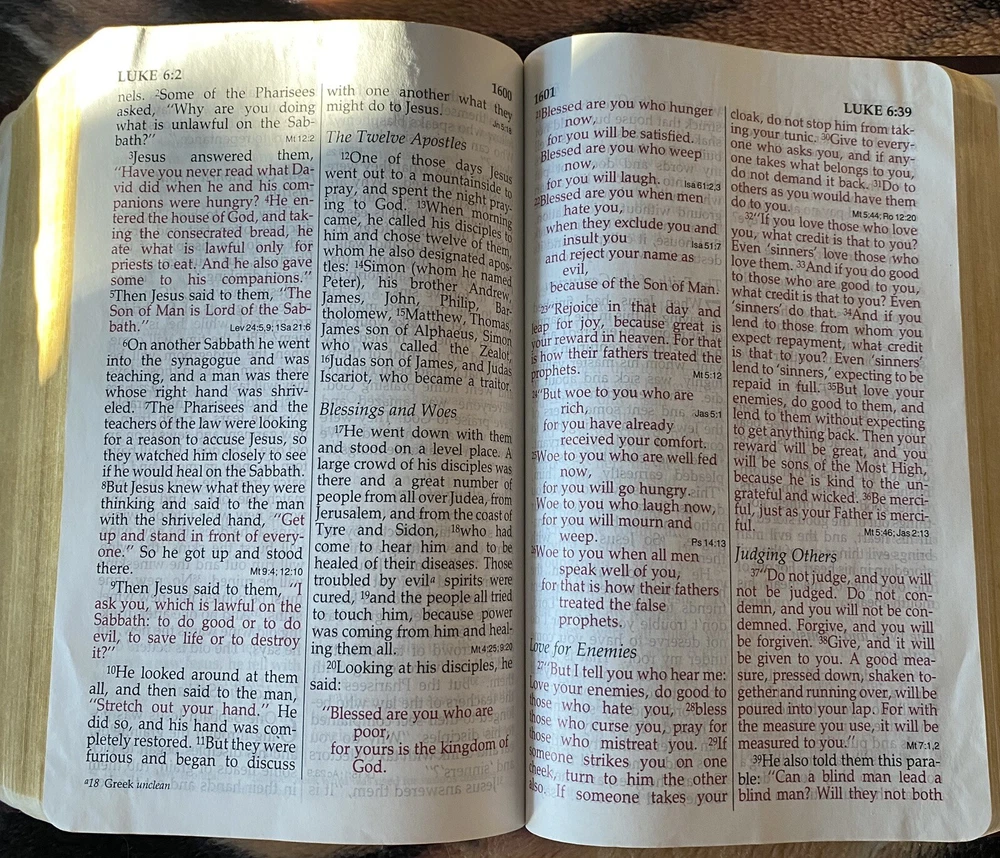 LUKE 6:2
1600
nels. ²Some of the Pharisees
asked, “Why are you doing
what is unlawful on the Sab-
bath?” Mt 12:2
³Jesus answered them,
“Have you never read what Da-
vid did when he and his com-
panions were hungry? ⁴He en-
tered the house of God, and tak-
ing the consecrated bread, he
ate what is lawful only for
priests to eat. And he also gave
some to his companions.”
⁵Then Jesus said to them, “The
Son of Man is Lord of the Sab-
bath.” Lev 24:5,9; 1Sa 21:6
⁶On another Sabbath he went
into the synagogue and was
teaching, and a man was there
whose right hand was shriv-
eled. ⁷The Pharisees and the
teachers of the law were looking
for a reason to accuse Jesus, so
they watched him closely to see
if he would heal on the Sabbath.
⁸But Jesus knew what they were
thinking and said to the man
with the shriveled hand, “Get
up and stand in front of every-
one.” So he got up and stood
there. Mt 9:4; 12:10
⁹Then Jesus said to them, “I
ask you, which is lawful on the
Sabbath: to do good or to do
evil, to save life or to destroy
it?”
¹⁰He looked around at them
all, and then said to the man,
“Stretch out your hand.” He
did so, and his hand was com-
pletely restored. ¹¹But they were
furious and began to discuss
ᵃ18 Greek unclean
with one another what they
might do to Jesus. Jn 5:18
The Twelve Apostles
¹²One of those days Jesus
went out to a mountainside to
pray, and spent the night pray-
ing to God. ¹³When morning
came, he called his disciples to
him and chose twelve of them,
whom he also designated apos-
tles: ¹⁴Simon (whom he named
Peter), his brother Andrew,
James, John, Philip, Bar-
tholomew, ¹⁵Matthew, Thomas,
James son of Alphaeus, Simon
who was called the Zealot,
¹⁶Judas son of James, and Judas
Iscariot, who became a traitor.
Blessings and Woes
¹⁷He went down with them
and stood on a level place. A
large crowd of his disciples was
there and a great number of
people from all over Judea, from
Jerusalem, and from the coast of
Tyre and Sidon, ¹⁸who had
come to hear him and to be
healed of their diseases. Those
troubled by evilᵃ spirits were
cured, ¹⁹and the people all tried
to touch him, because power
was coming from him and heal-
ing them all. Mt 4:25; 9:20
²⁰Looking at his disciples, he
said:
“Blessed are you who are
poor,
for yours is the kingdom of
God.
1601
LUKE 6:39
²¹Blessed are you who hunger
now,
for you will be satisfied.
Blessed are you who weep
now,
for you will laugh. Isa 61:2,3
²²Blessed are you when men
hate you,
when they exclude you and
insult you Isa 51:7
and reject your name as
evil,
because of the Son of Man.
²³“Rejoice in that day and
leap for joy, because great is
your reward in heaven. For that
is how their fathers treated the
prophets. Mt 5:12
²⁴“But woe to you who are
rich, Jas 5:1
for you have already
received your comfort.
²⁵Woe to you who are well fed
now,
for you will go hungry.
Woe to you who laugh now,
for you will mourn and
weep. Ps 14:13
²⁶Woe to you when all men
speak well of you,
for that is how their fathers
treated the false
prophets.
Love for Enemies
²⁷“But I tell you who hear me:
Love your enemies, do good to
those who hate you, ²⁸bless
those who curse you, pray for
those who mistreat you. ²⁹If
someone strikes you on one
cheek, turn to him the other
also. If someone takes your
cloak, do not stop him from tak-
ing your tunic. ³⁰Give to every-
one who asks you, and if any-
one takes what belongs to you,
do not demand it back. ³¹Do to
others as you would have them
do to you. Mt 5:44; Ro 12:20
³²“If you love those who love
you, what credit is that to you?
Even ‘sinners’ love those who
love them. ³³And if you do good
to those who are good to you,
what credit is that to you? Even
‘sinners’ do that. ³⁴And if you
lend to those from whom you
expect repayment, what credit
is that to you? Even ‘sinners’
lend to ‘sinners,’ expecting to be
repaid in full. ³⁵But love your
enemies, do good to them, and
lend to them without expecting
to get anything back. Then your
reward will be great, and you
will be sons of the Most High,
because he is kind to the un-
grateful and wicked. ³⁶Be merci-
ful, just as your Father is merci-
ful. Mt 5:46; Jas 2:13
Judging Others
³⁷“Do not judge, and you will
not be judged. Do not con-
demn, and you will not be con-
demned. Forgive, and you will
be forgiven. ³⁸Give, and it will
be given to you. A good mea-
sure, pressed down, shaken to-
gether and running over, will be
poured into your lap. For with
the measure you use, it will be
measured to you.” Mt 7:1,2
³⁹He also told them this para-
ble: “Can a blind man lead a
blind man? Will they not both